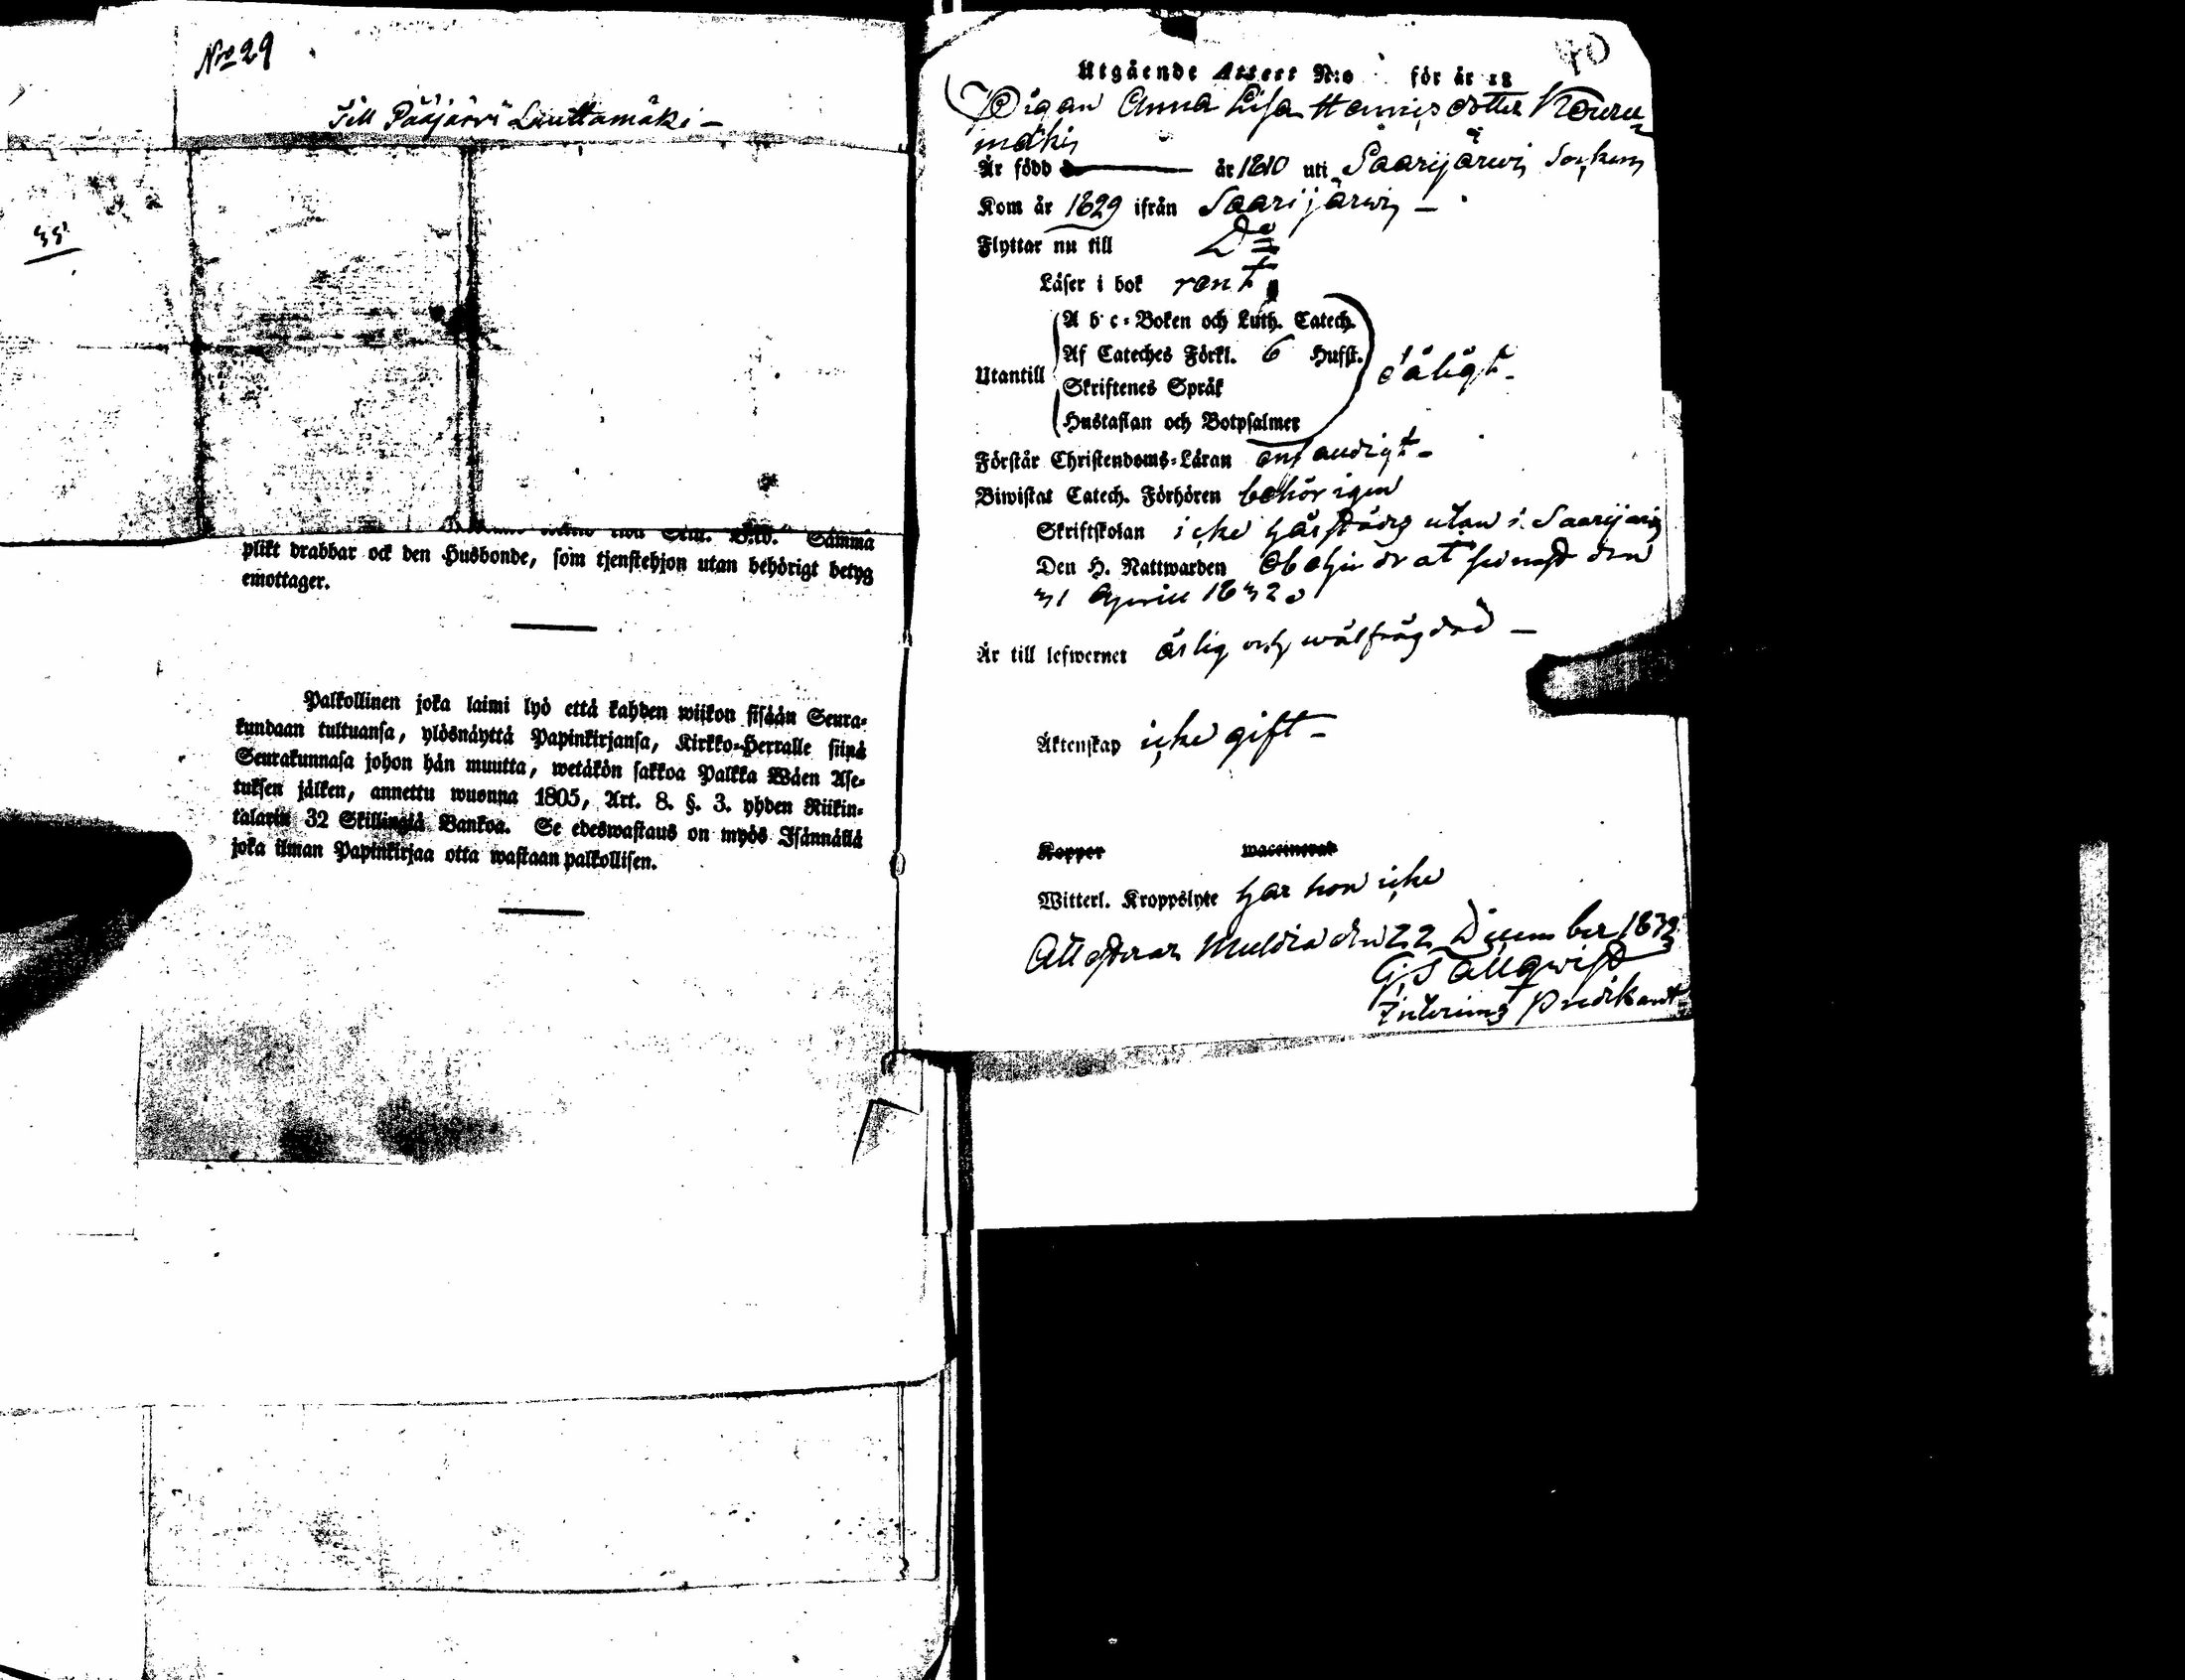 No 29
Till Pääjärvi Liuttamäki –
35
Samma
plikt drabbar ock den Husbonde, som tjenstehjon utan behörigt betyg
emottager.
Palkollinen joka laimi lyö että kahden wiikon sisään Seura-
kundaan tultuansa, ylösnäyttä Papinkirjansa, Kirkko-Herralle siinä
Seurakunnasa johon hän muutta, wetäkön sakkoa Palkka Wäen Ase-
tuksen jälken, annettu wuonna 1805, Art. 8. §. 3. yhden Riikin-
talarin 32 Skillingiä Bankoa. Se edeswastaus on myös Isännällä
joka ilman Papinkirjaa otta wastaan palkollisen.
40
Utgående Attest N:o för år 18
Pigan Anna Lisa Hannisdotter Kouru
mäki
Är född år 1810 uti Saarijärwi Socken
Kom år 1829 ifrån Saarijärwi –
Flyttar nu till Do
Läser i bok rent
A b c-Boken och Luth. Catech.
Af Cateches Förkl. 6 Hufst.
Utantill dåligt –
Skriftenes Språk
Hustaflan och Botpsalmer
Förstår Christendoms-Läran enfaldigt –
Biwistat Catech. Förhören behörigen
Skriftskolan icke härstädes utan i Saarijärwi
Den H. Nattwarden Obehindrat senast den
April 1832
Är till lefwernet ärlig och wälfrägdad –
Äktenskap icke gift –
Koppor waccinerat
Witterl. Kroppslyte har hon icke
Attesterar Muldia den 22 December 1832
Interims Predikant